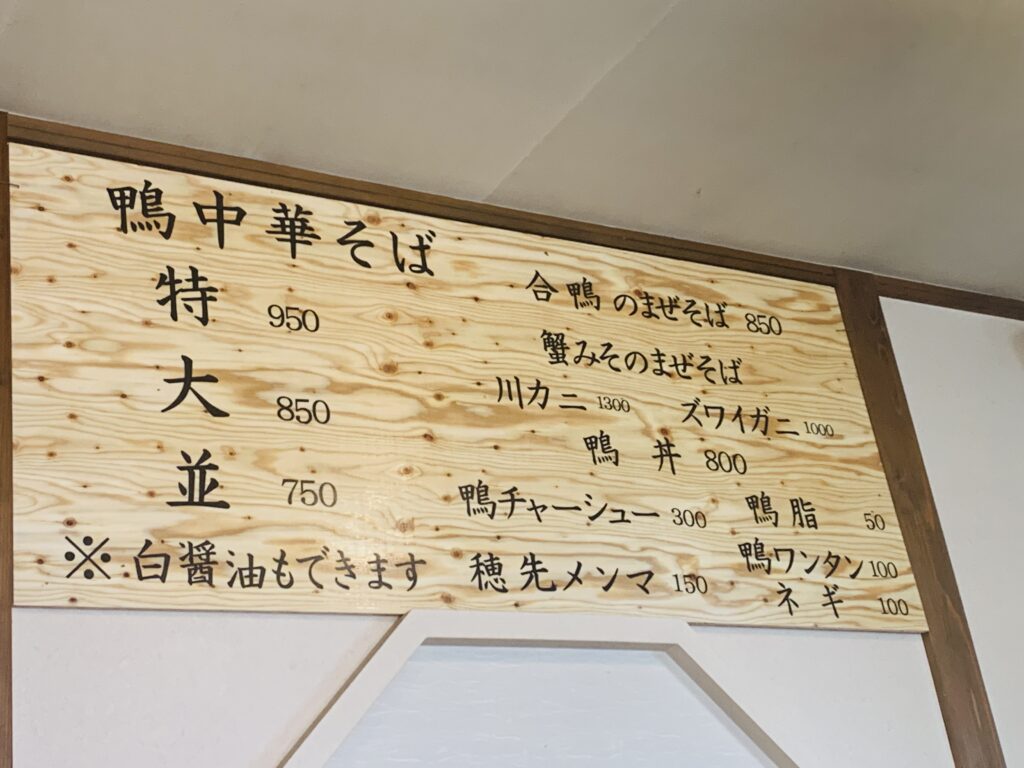 鴨中華そば
特 950
大 850
並 750
※白醤油もできます
合鴨のまぜそば 850
蟹みそのまぜそば
川カニ 1300 ズワイガニ 1000
鴨丼 800
鴨チャーシュー 300 鴨脂 50
鴨ワンタン 100
穂先メンマ 150
ネギ 100